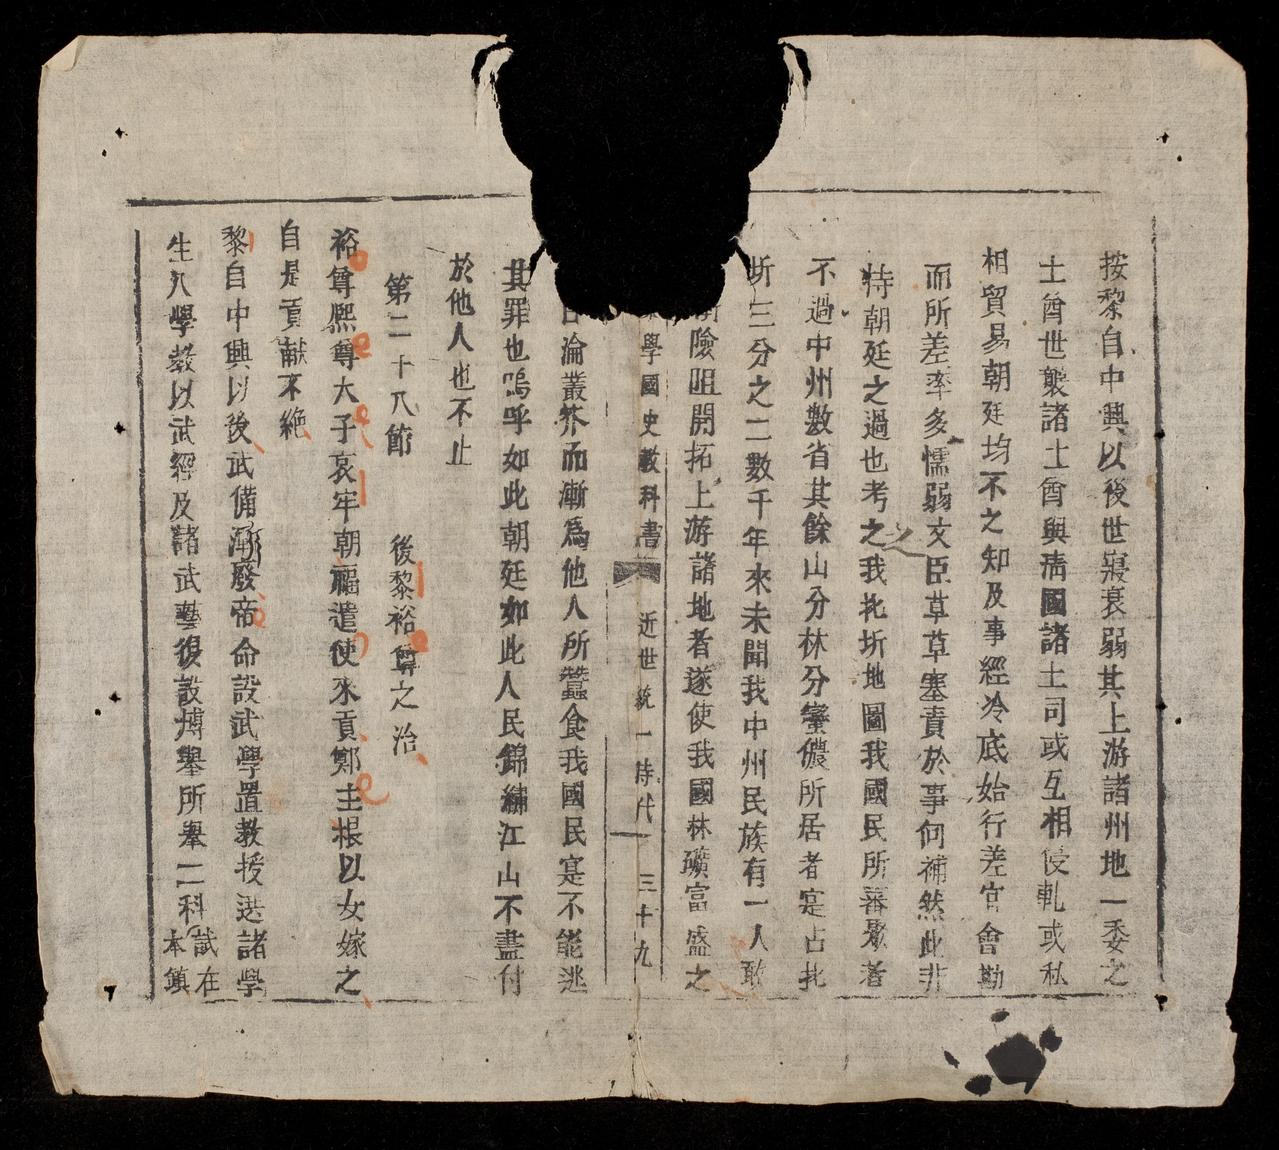 按黎自中興以後世寢衰弱其上游諸州地一委之
土酋世襲諸土酋與淸國諸土司或互相侵軋或私
相貿易朝廷均不之知及事經冷底始行差官會勘
而所差率多懦弱文臣草草塞責於事何補然此非
特朝廷之過也考之我圻地圖我國民所蕃聚者
不過中州數省其餘山分林分蠻儂所居者寔占
圻三分之二數千年來未聞我中州民族有一人敢
險阻開拓上游諸地者遂使我國林礦富盛之
學國史教科書 近世統一時代 三十九
淪叢芥而漸爲他人所蠶食我國民寔不能逃
其罪也嗚呼如此朝廷如此人民錦繡江山不盡付
於他人也不止
第二十八節 後黎裕尊之治
裕尊熙尊大子哀牢朝福遣使來貢鄭主棍以女嫁之
自是貢獻不絶
黎自中興以後武備漸廢帝命設武學置教授送諸學
生入學教以武經及諸武藝復設博舉所舉二科試在
本鎮